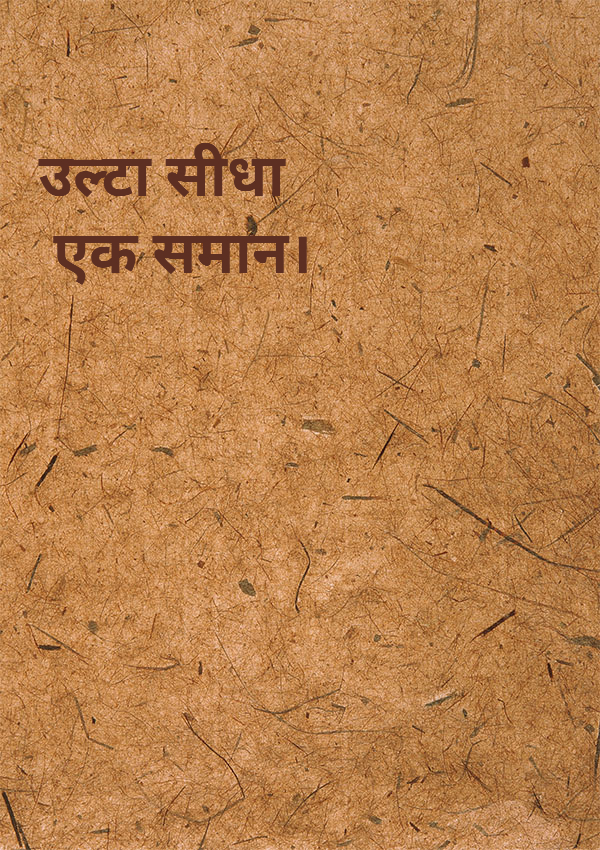 उल्टा सीधा
एक समान।